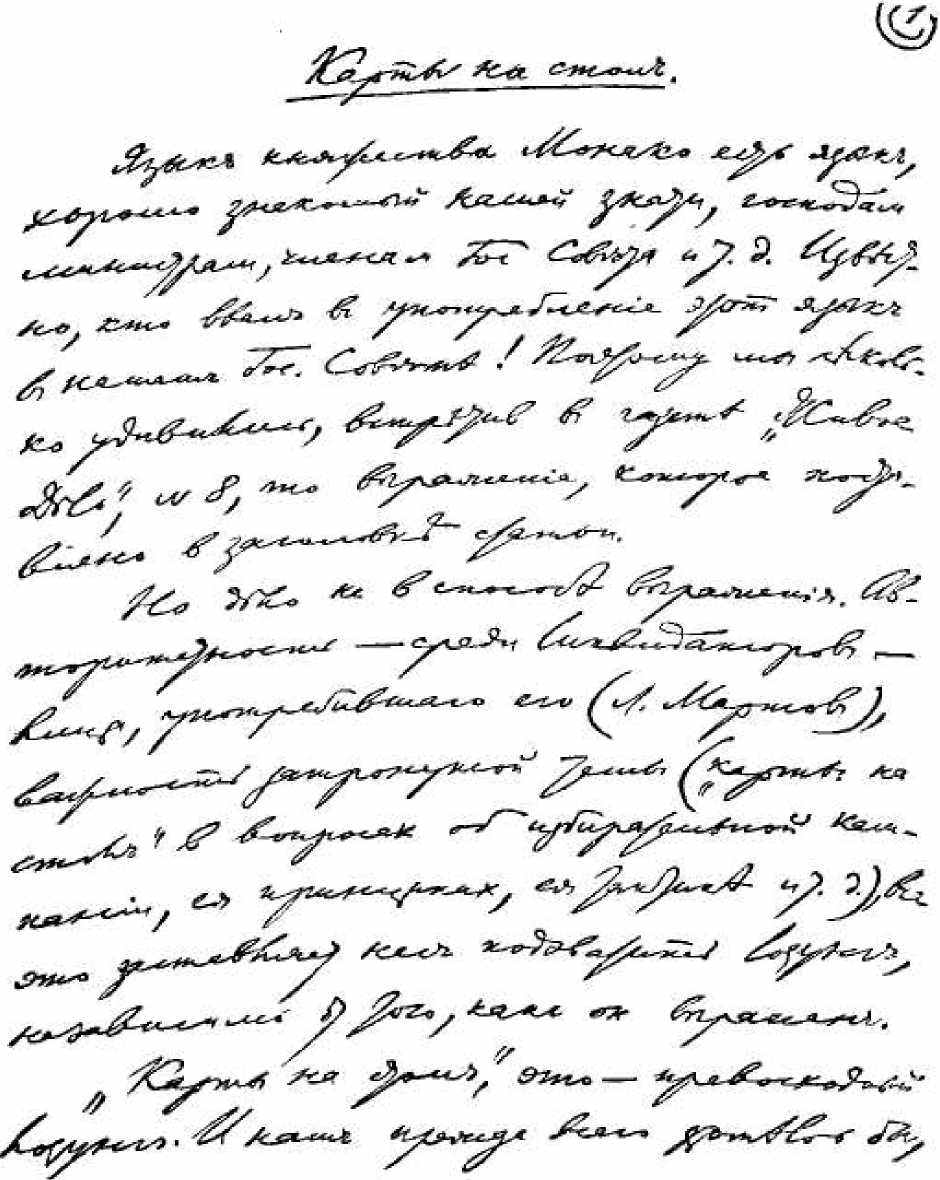 1
Карты на столъ.
Языкъ княжества Монако есть языкъ,
хорошо знакомый нашей знати, господам
министрам, членам Гос Совѣта и т. д. Извѣст-
но, кто ввелъ в употребленіе этот языкъ
в нашем Гос. Совѣтѣ! Поэтому мы нѣсколь-
ко удивились, встрѣтив в газетѣ „Живое
Дѣло", N 8, то выраженіе, которое поста-
влено в заголовкѣ статьи.
Но дѣло не в способѣ выраженія. Ав-
торитетность — среди ликвидаторов —
лица, употребившаго его (Л. Мартов),
важность затронутой темы („карты на
столъ" в вопросах об избирательной кам-
паніи, ея принципах, ея тактикѣ и т. д.), все
это заставляет нас подхватить лозунгъ,
независимо от того, как он выражен.
„Карты на столъ", это — превосходный
лозунгъ. И нам прежде всего хотѣлось бы,